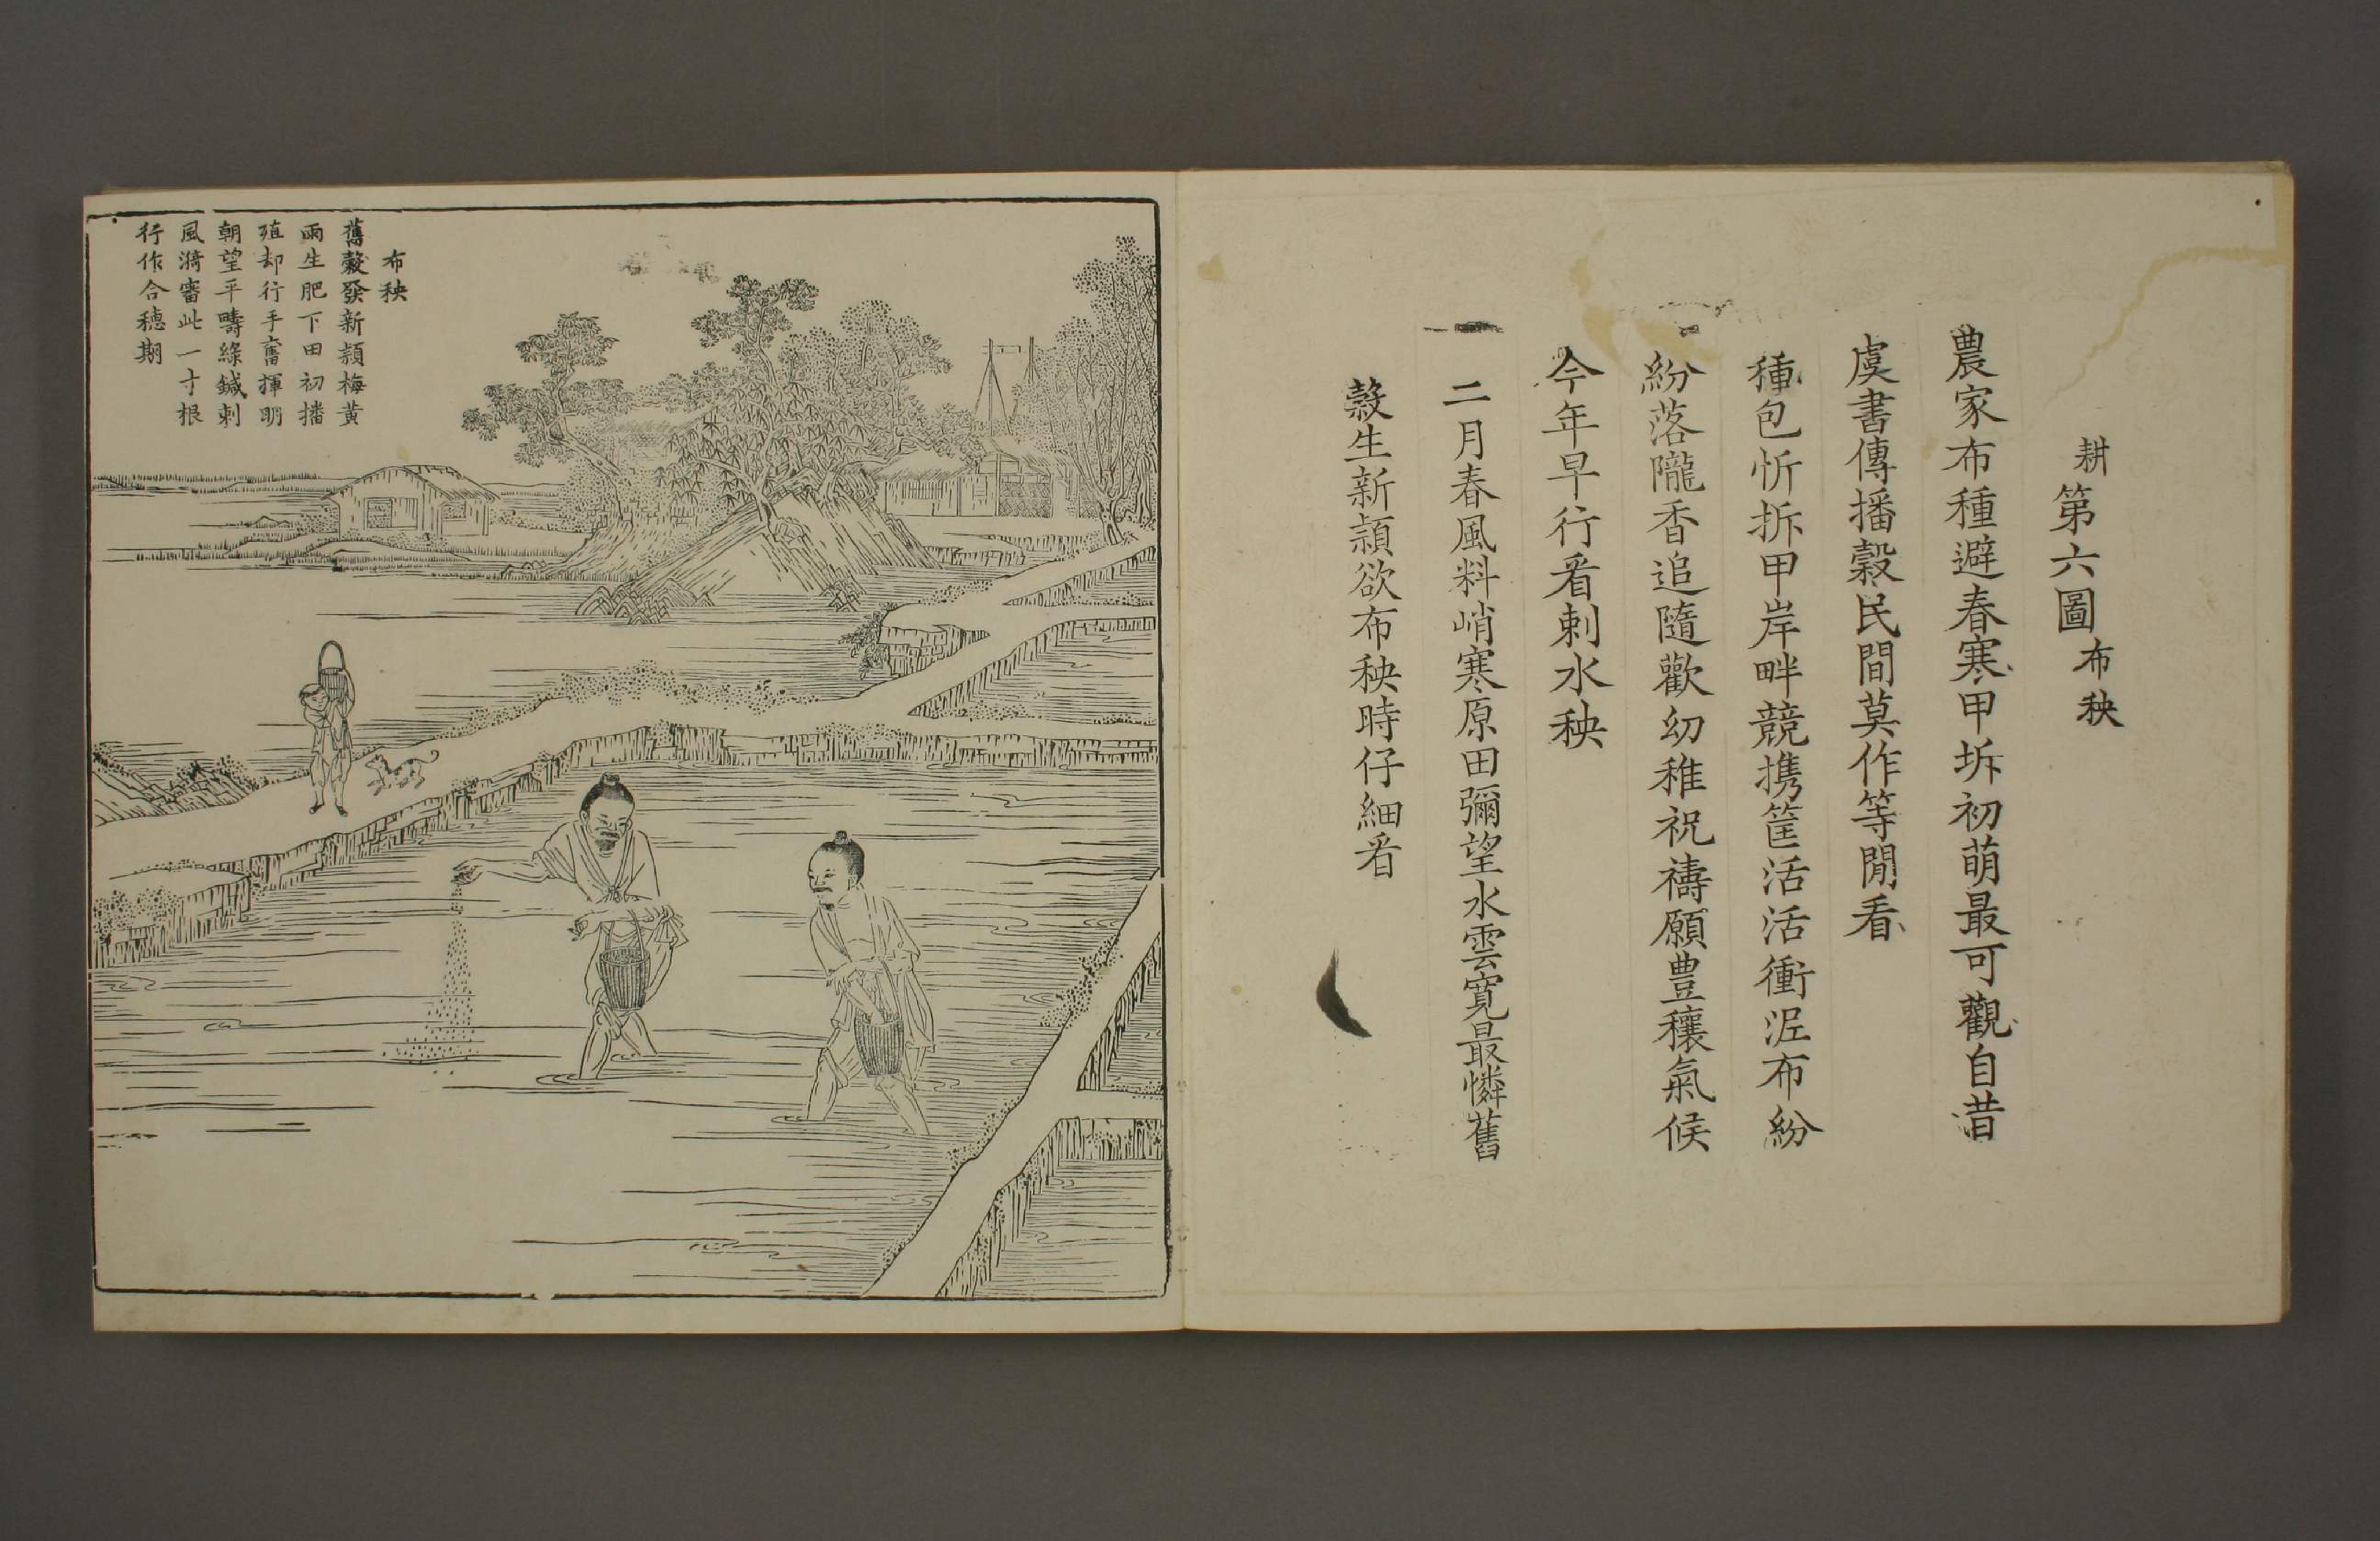 耕第六圖布秧
農家布種避春寒甲坼初萌最可觀自昔
虞書傳播穀民間莫作等閒看
種包忻拆甲岸畔競携筐活活衝泥布紛
紛落隴香追隨歡幼稚祝禱願豊穰氣候
今年早行看刺水秧
二月春風料峭寒原田彌望水雲寬最憐舊
穀生新穎欲布秧時仔細看
布秧
舊穀發新穎梅黃
雨生肥下田初播
殖却行手奮揮明
朝望平疇綠鍼刺
風漪審此一寸根
行作合穗期